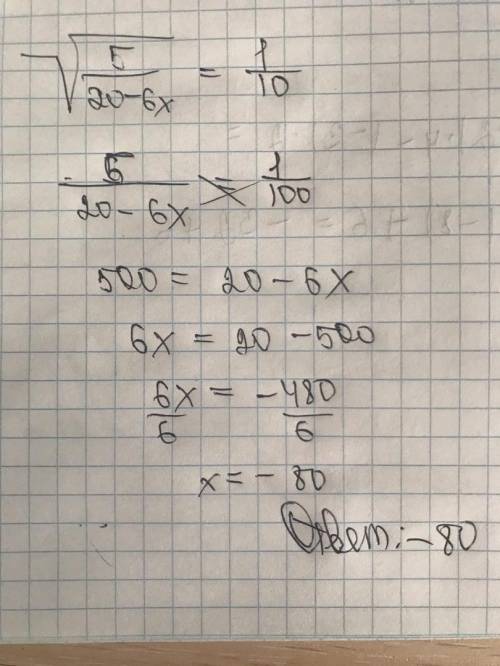 √(5/(20-6x)) = 1/10
5/(20-6x) = 1/100
500 = 20 - 6x
6x = 20 - 500
6x/6 = -480/6
x = -80
Ответ: -80